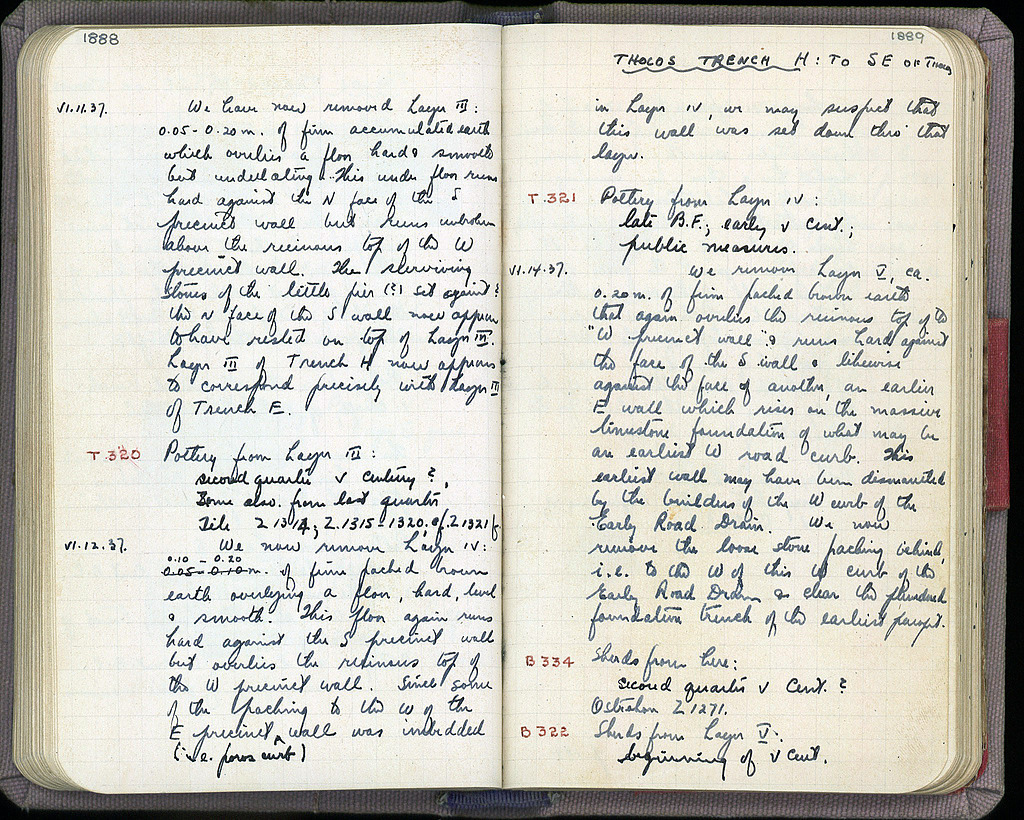 1888
VI.11.37. We have now removed Layer III:
0.05-0.20 m. of firm accumulated earth
which overlies a floor hard & smooth
but undulating. This under floor runs
hard against the N face of the S
precinct wall but runs unbroken
above the ruinous top of the W
precinct wall. The surviving
stones of the little pier (?) set against
the N face of the S wall now appear
to have rested on top of Layer III.
Layer III of Trench H now appears
to correspond precisely with Layer III
of Trench E.
T.320 Pottery from Layer III:
second quarter V century?,
Some also from last quarter
Tile Z 1314; Z.1315-1320, cf. Z 1321
VI.12.37. We now remove Layer IV:
0.10 - 0.20
0.05-0.10 m. of firm packed brown
earth overlying a floor, hard, level
& smooth. This floor again runs
hard against the S precinct wall
but overlies the ruinous top of
the W precinct wall. Since some
of the packing to the W of the
E precinct wall was imbedded
(i.e. poros curb)
1889
THOLOS TRENCH H: TO SE OF THOLOS
in Layer IV, we may suspect that
this wall was set down thro that
layer.
T.321 Pottery from Layer IV:
late B.F.; early V Cent.;
public measures.
VI.14.37. We remove Layer V, ca.
0.20 m. of firm packed brown earth
that again overlies the ruinous top of the
"W precinct wall" & runs hard against
the face of the S wall & likewise
against the face of another, an earlier
E wall which rises on the massive
limestone foundation of what may be
an earliest W road curb. This
earliest wall may have been dismantled
by the builders of the W curb of the
Early Road Drain. We now
remove the loose stone packing behind,
i.e. to the W of this W curb of the
Early Road Drain & clear the plundered
foundation trench of the earliest parapet.
B 334 Sherds from here:
second quarter V Cent.?
Ostrakon Z 1271.
B 322 Sherds from Layer V:
beginning of V Cent.